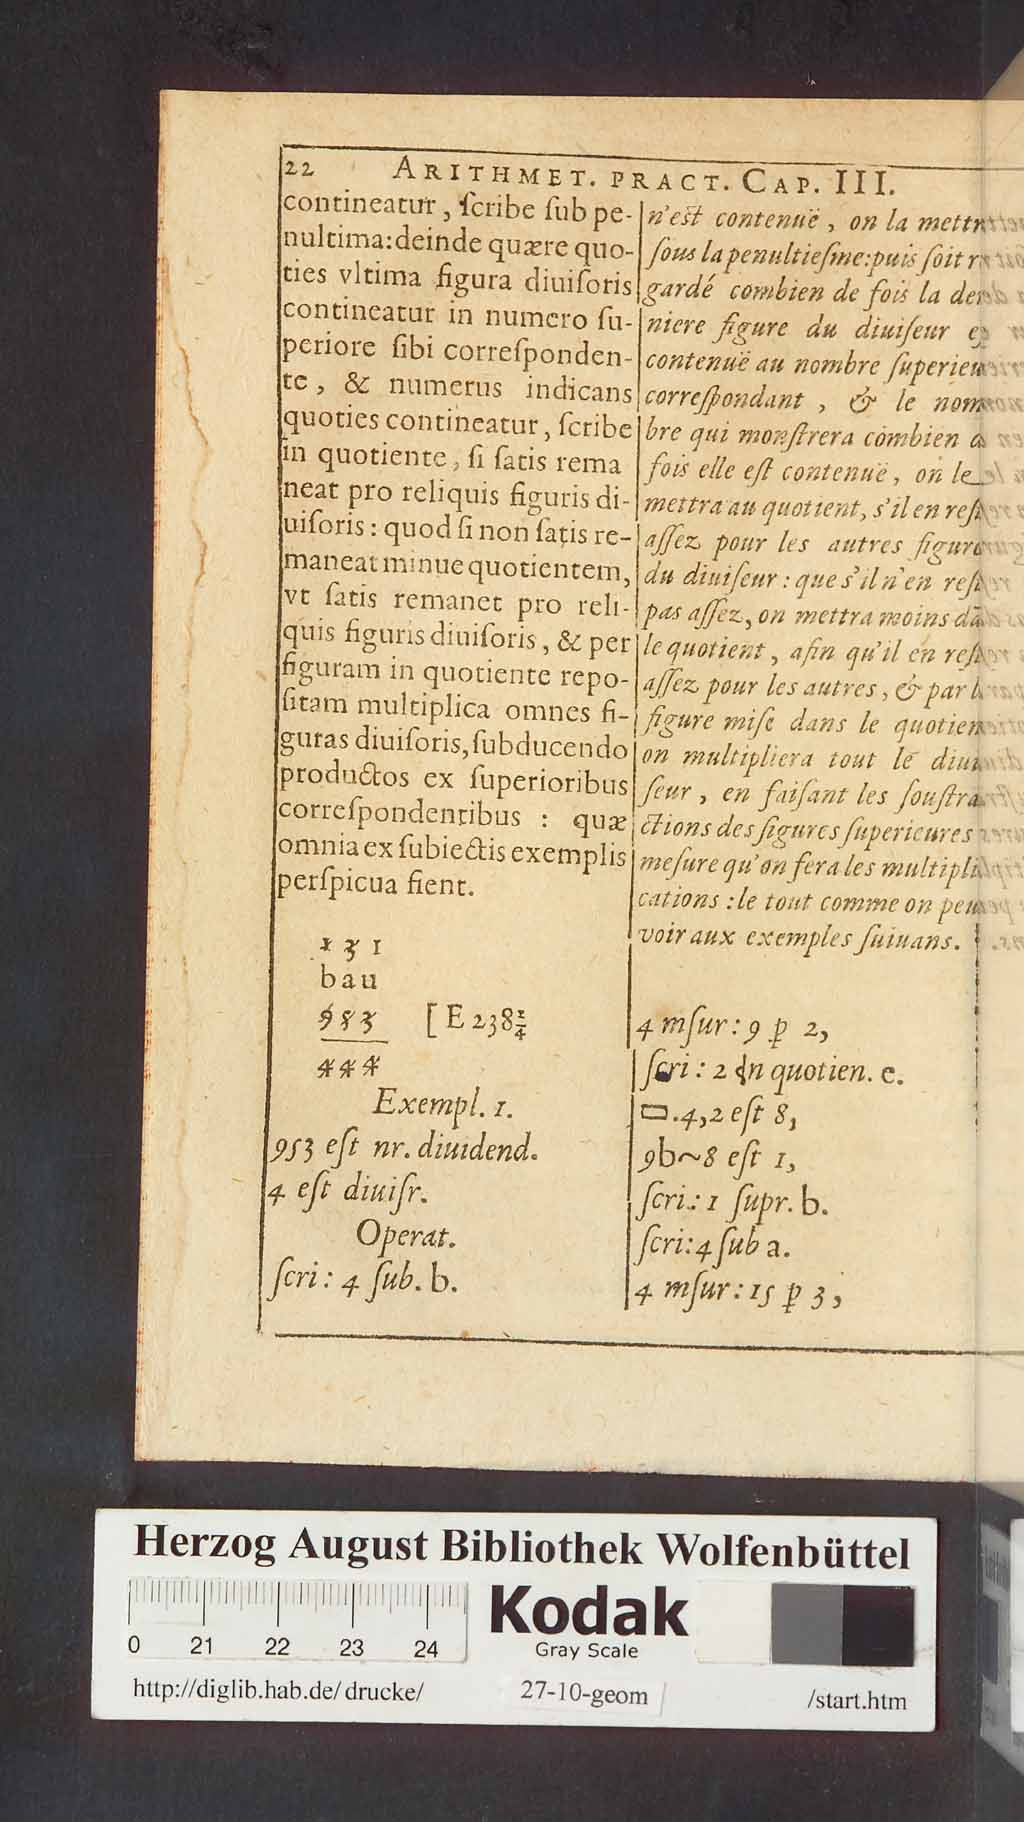 22 ARITHMET. PRACT. CAP. III.
contineatur, ſcribe ſub pe-
nultima: deinde quære quo-
ties vltima figura diuiſoris
contineatur in numero ſu-
periore ſibi correſponden-
te, & numerus indicans
quoties contineatur, ſcribe
in quotiente, ſi ſatis rema
neat pro reliquis figuris di-
uiſoris: quod ſi non ſatis re-
maneat minue quotientem,
vt ſatis remanet pro reli-
quis figuris diuiſoris, & per
figuram in quotiente repo-
ſitam multiplica omnes fi-
guras diuiſoris, ſubducendo
productos ex ſuperioribus
correſpondentibus : quæ
omnia ex ſubiectis exemplis
perſpicua fient.
1 3 1
b a u
9 5 3 [E 238 1/4
4 4 4
Exempl. 1.
953 eſt nr. diuidend.
4 eſt diuiſr.
Operat.
ſcri: 4 ſub. b.
n'eſt contenuë, on la mettr
ſous la penultieſme: puis ſoit r
gardé combien de fois la der
niere figure du diuiſeur e
contenuë au nombre ſuperieur
correſpondant, & le nom
bre qui monſtrera combien d
fois elle eſt contenuë, on le
mettra au quotient, s'il en reſt
aſſez pour les autres figure
du diuiſeur: que s'il n'en reſt
pas aſſez, on mettra moins dā
le quotient, afin qu'il en reſt
aſſez pour les autres, & par l
figure miſe dans le quotien
on multipliera tout le diui
ſeur, en faiſant les ſouſtra
ctions des figures ſuperieures
meſure qu'on fera les multipli
cations: le tout comme on peu
voir aux exemples ſuiuans.
4 mſur: 9 p 2,
ſcri: 2 in quotien. e.
▭.4,2 eſt 8,
9b~8 eſt 1,
ſcri: 1 ſupr. b.
ſcri: 4 ſub a.
4 mſur: 15 p 3,
Herzog August Bibliothek Wolfenbüttel
0 21 22 23 24
Kodak
Gray Scale
http://diglib.hab.de/drucke/ 27-10-geom /start.htm